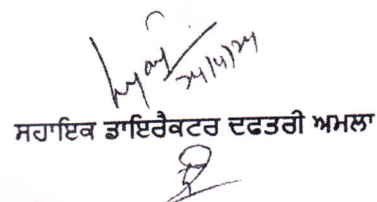 24/4/24
ਸਹਾਇਕ ਡਾਇਰੈਕਟਰ ਦਫਤਰੀ ਅਮਲਾ